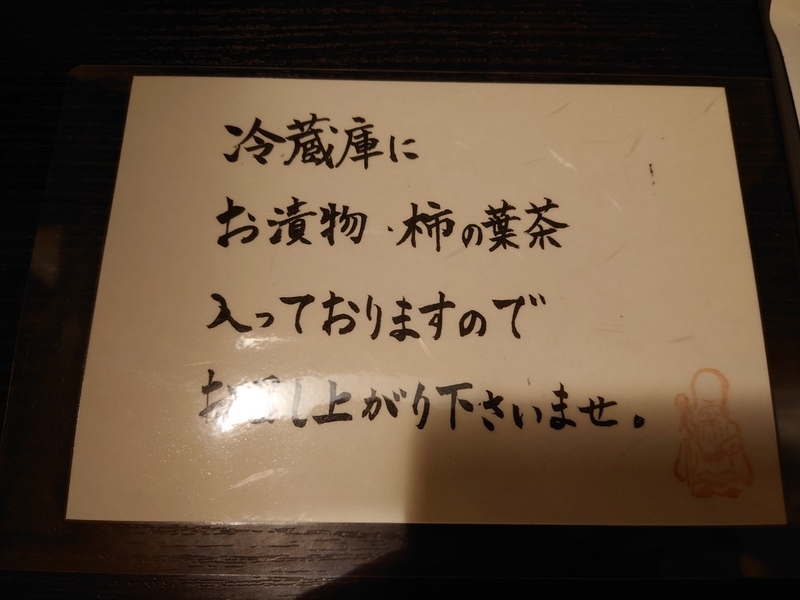 冷蔵庫に
お漬物・柿の葉茶
入っておりますので
お召し上がり下さいませ。